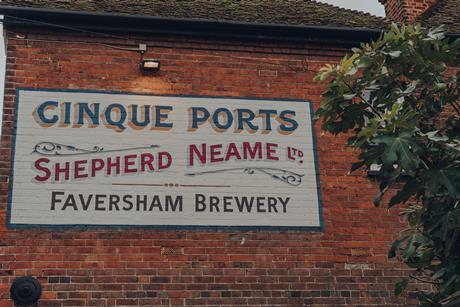 CINQUE PORTS
SHEPHERD NEAME LTD
FAVERSHAM BREWERY